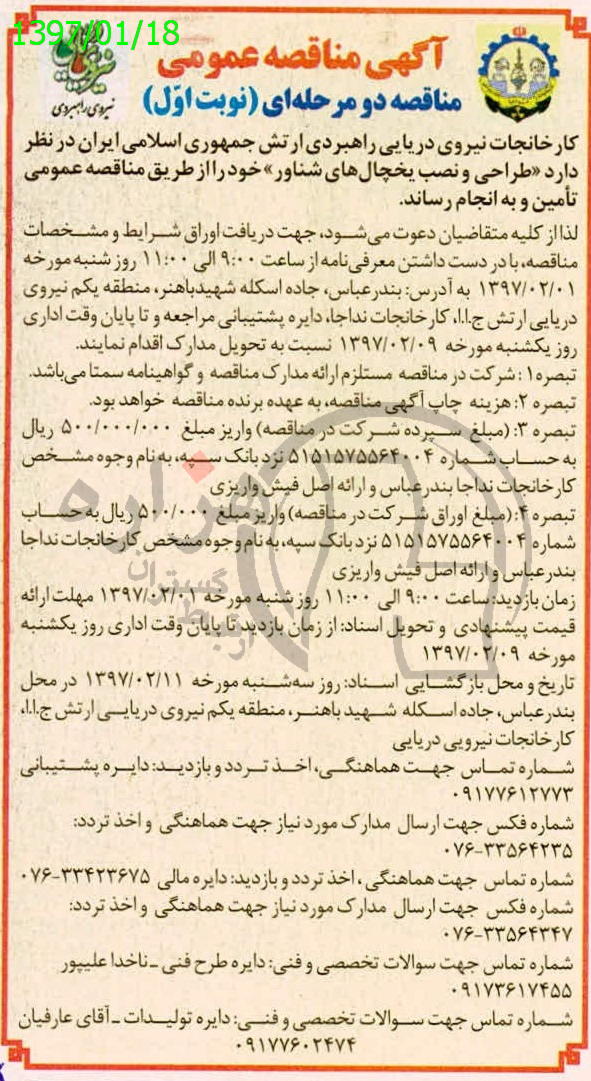 1397/01/18
آگهی مناقصه عمومی
مناقصه دو مرحله‌ای (نوبت اوّل)
نیروی راهبردی
کارخانجات نیروی دریایی راهبردی ارتش جمهوری اسلامی ایران در نظر
دارد «طراحی و نصب یخچال‌های شناور» خود را از طریق مناقصه عمومی
تأمین و به انجام رساند.
لذا از کلیه متقاضیان دعوت می‌شود، جهت دریافت اوراق شرایط و مشخصات
مناقصه، با در دست داشتن معرفی‌نامه از ساعت ۹:۰۰ الی ۱۱:۰۰ روز شنبه مورخه
۱۳۹۷/۰۲/۰۱ به آدرس: بندرعباس، جاده اسکله شهیدباهنر، منطقه یکم نیروی
دریایی ارتش ج.ا.ا، کارخانجات نداجا، دایره پشتیبانی مراجعه و تا پایان وقت اداری
روز یکشنبه مورخه ۱۳۹۷/۰۲/۰۹ نسبت به تحویل مدارک اقدام نمایند.
تبصره۱: شرکت در مناقصه مستلزم ارائه مدارک مناقصه و گواهینامه سمتا می‌باشد.
تبصره ۲: هزینه چاپ آگهی مناقصه، به عهده برنده مناقصه خواهد بود.
تبصره ۳: (مبلغ سپرده شرکت در مناقصه) واریز مبلغ ۵۰۰/۰۰۰/۰۰۰ ریال
به حساب شماره ۵۱۵۱۵۷۵۵۶۴۰۰۴ نزد بانک سپه، به نام وجوه مشخص
کارخانجات نداجا بندرعباس و ارائه اصل فیش واریزی
تبصره ۴: (مبلغ اوراق شرکت در مناقصه) واریز مبلغ ۵۰۰/۰۰۰ ریال به حساب
شماره ۵۱۵۱۵۷۵۵۶۴۰۰۴ نزد بانک سپه، به نام وجوه مشخص کارخانجات نداجا
بندرعباس و ارائه اصل فیش واریزی
زمان بازدید: ساعت ۹:۰۰ الی ۱۱:۰۰ روز شنبه مورخه ۱۳۹۷/۰۲/۰۱ مهلت ارائه
قیمت پیشنهادی و تحویل اسناد: از زمان بازدید تا پایان وقت اداری روز یکشنبه
مورخه ۱۳۹۷/۰۲/۰۹
تاریخ و محل بازگشایی اسناد: روز سه‌شنبه مورخه ۱۳۹۷/۰۲/۱۱ در محل
بندرعباس، جاده اسکله شهید باهنر، منطقه یکم نیروی دریایی ارتش ج.ا.ا،
کارخانجات نیرویی دریایی
شماره تماس جهت هماهنگی، اخذ تردد و بازدید: دایره پشتیبانی
۰۹۱۷۷۶۱۲۷۷۳
شماره فکس جهت ارسال مدارک مورد نیاز جهت هماهنگی و اخذ تردد:
۰۷۶-۳۳۵۶۴۲۳۵
شماره تماس جهت هماهنگی، اخذ تردد و بازدید: دایره مالی ۳۳۴۲۳۶۷۵-۰۷۶
شماره فکس جهت ارسال مدارک مورد نیاز جهت هماهنگی و اخذ تردد:
۰۷۶-۳۳۵۶۴۳۴۷
شماره تماس جهت سوالات تخصصی و فنی: دایره طرح فنی ـ ناخدا علیپور
۰۹۱۷۳۶۱۷۴۵۵
شماره تماس جهت سوالات تخصصی و فنی: دایره تولیدات ـ آقای عارفیان
۰۹۱۷۷۶۰۲۴۷۴